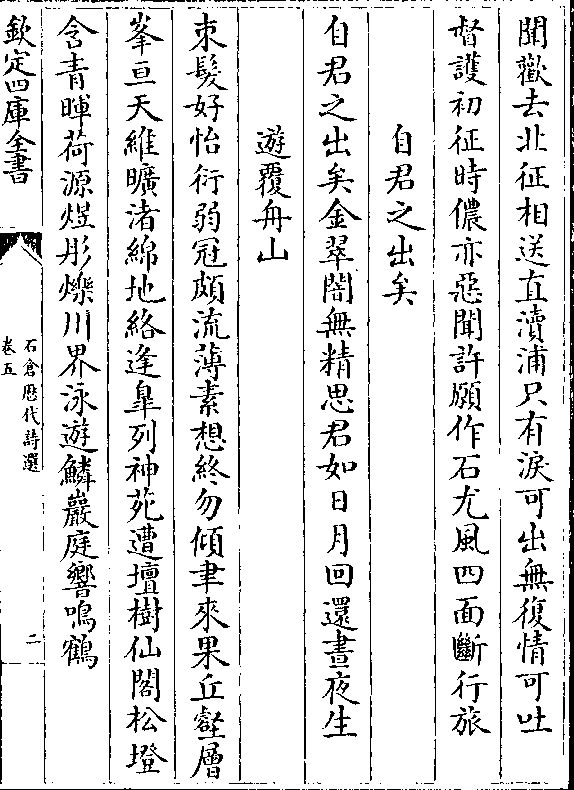 聞歡去北征相送直瀆浦只有淚可出無復情可吐
督護初征時儂亦惡聞許願作石尤風四面斷行旅
自君之出矣
自君之出矣金翠闇無精思君如日月回還晝夜生
遊覆舟山
束髮好怡衍弱冠頗流薄素想終勿傾聿來果丘壑層
峯亘天維曠渚綿地絡逢臯列神苑遭壇樹仙閣松墱
含青暉荷源煜彤爍川界泳遊鱗巖庭響鳴鶴
欽定四庫全書
石倉歷代詩選
卷五
二